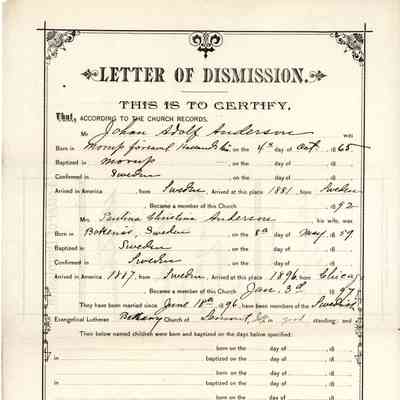 LETTER OF DISMISSION.
THIS IS TO CERTIFY,
That, ACCORDING TO THE CHURCH RECORDS,
Mr Johan Adolf Anderson was
Born in Morup on the 4th day of Oct. 1865
Baptized in Morup on the day of 18
Confirmed in Sweden on the day of 18
Arrived in America from Sweden Arrived at this place 1881, from Sweden
Became a member of this Church 1892
Mrs. Paulina Christina Anderson his wife, was
Born in Bottenäs, Sweden on the 8th day of May, 1859
Baptized in Sweden on the day of 18
Confirmed in Sweden on the day of 18
Arrived in America 1887, from Sweden, Arrived at this place 1896, from Chicago
Became a member of this Church Jan. 3d 1897
They have been married since June 18th 96, have been members of the Swedish
Evangelical Lutheran Bethany Church of Lemont, in good standing; and
Then below named children were born and baptized on the days below specified:
born on the day of 18
in baptized on the day of 18
born on the day of 18
in baptized on the day of 18
born on the day of 18